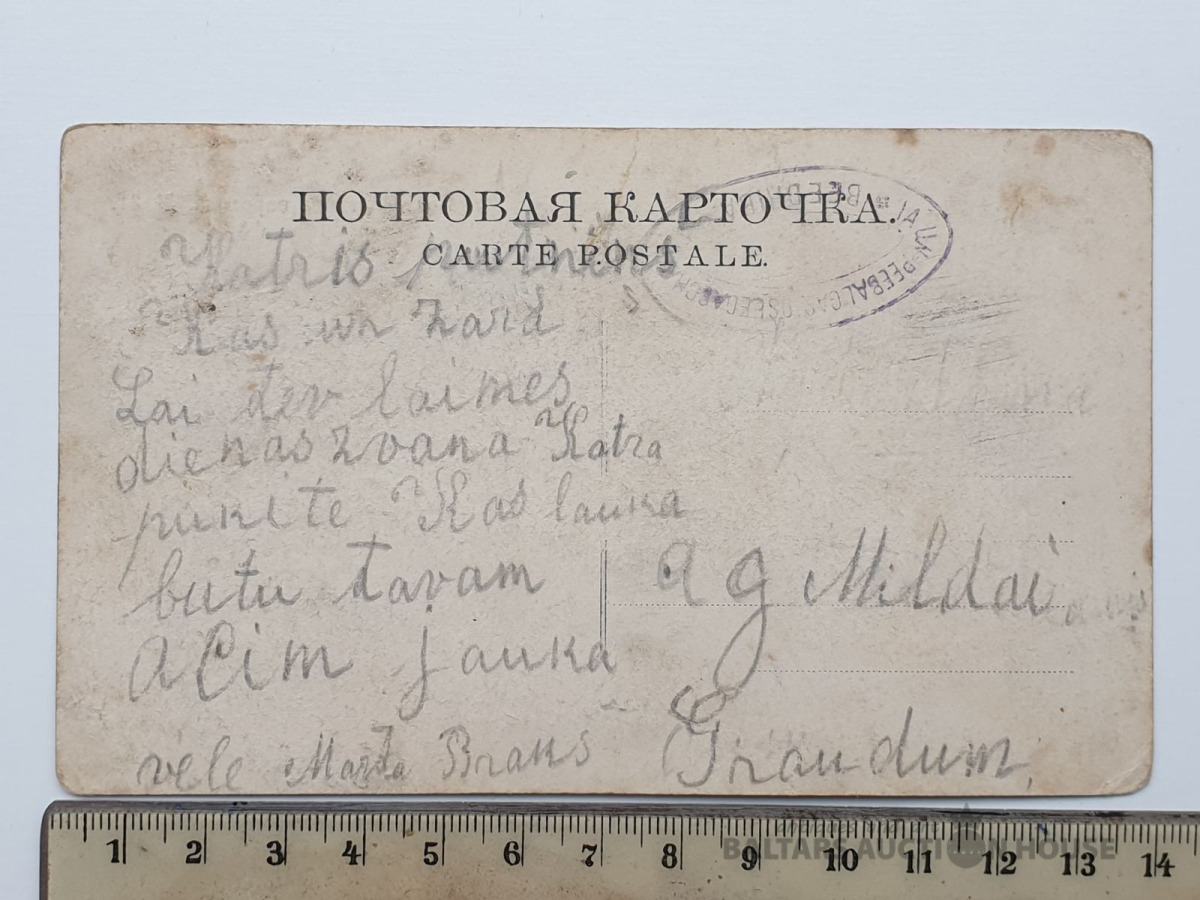 ПОЧТОВАЯ КАРТОЧКА.
CARTE POSTALE.
Katris putnins
Kas un zard
Lai tev laimes
dienas zvana Katra
pukite Kas lauka
butu tavam
acim jauka
vele Marta Brans
a g Mildai
Graudum
BALTARS AUCTION HOUSE
1 2 3 4 5 6 7 8 9 10 11 12 13 14